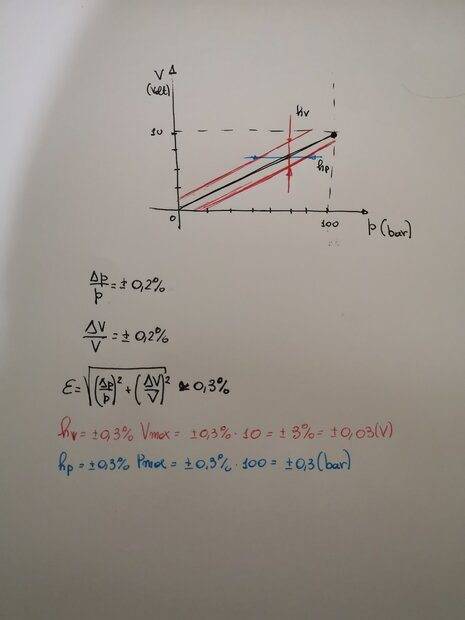 V
(Volt)
hv
10
hp
0
100
p (bar)
Δp/p = ± 0,2%
ΔV/V = ± 0,2%
ε = √((Δp/p)² + (ΔV/V)²) ≈ 0,3%
hv = ±0,3% Vmax = ±0,3% · 10 = ± 3% = ±0,03 (V)
hp = ±0,3% Pmax = ±0,3% · 100 = ±0,3 (bar)